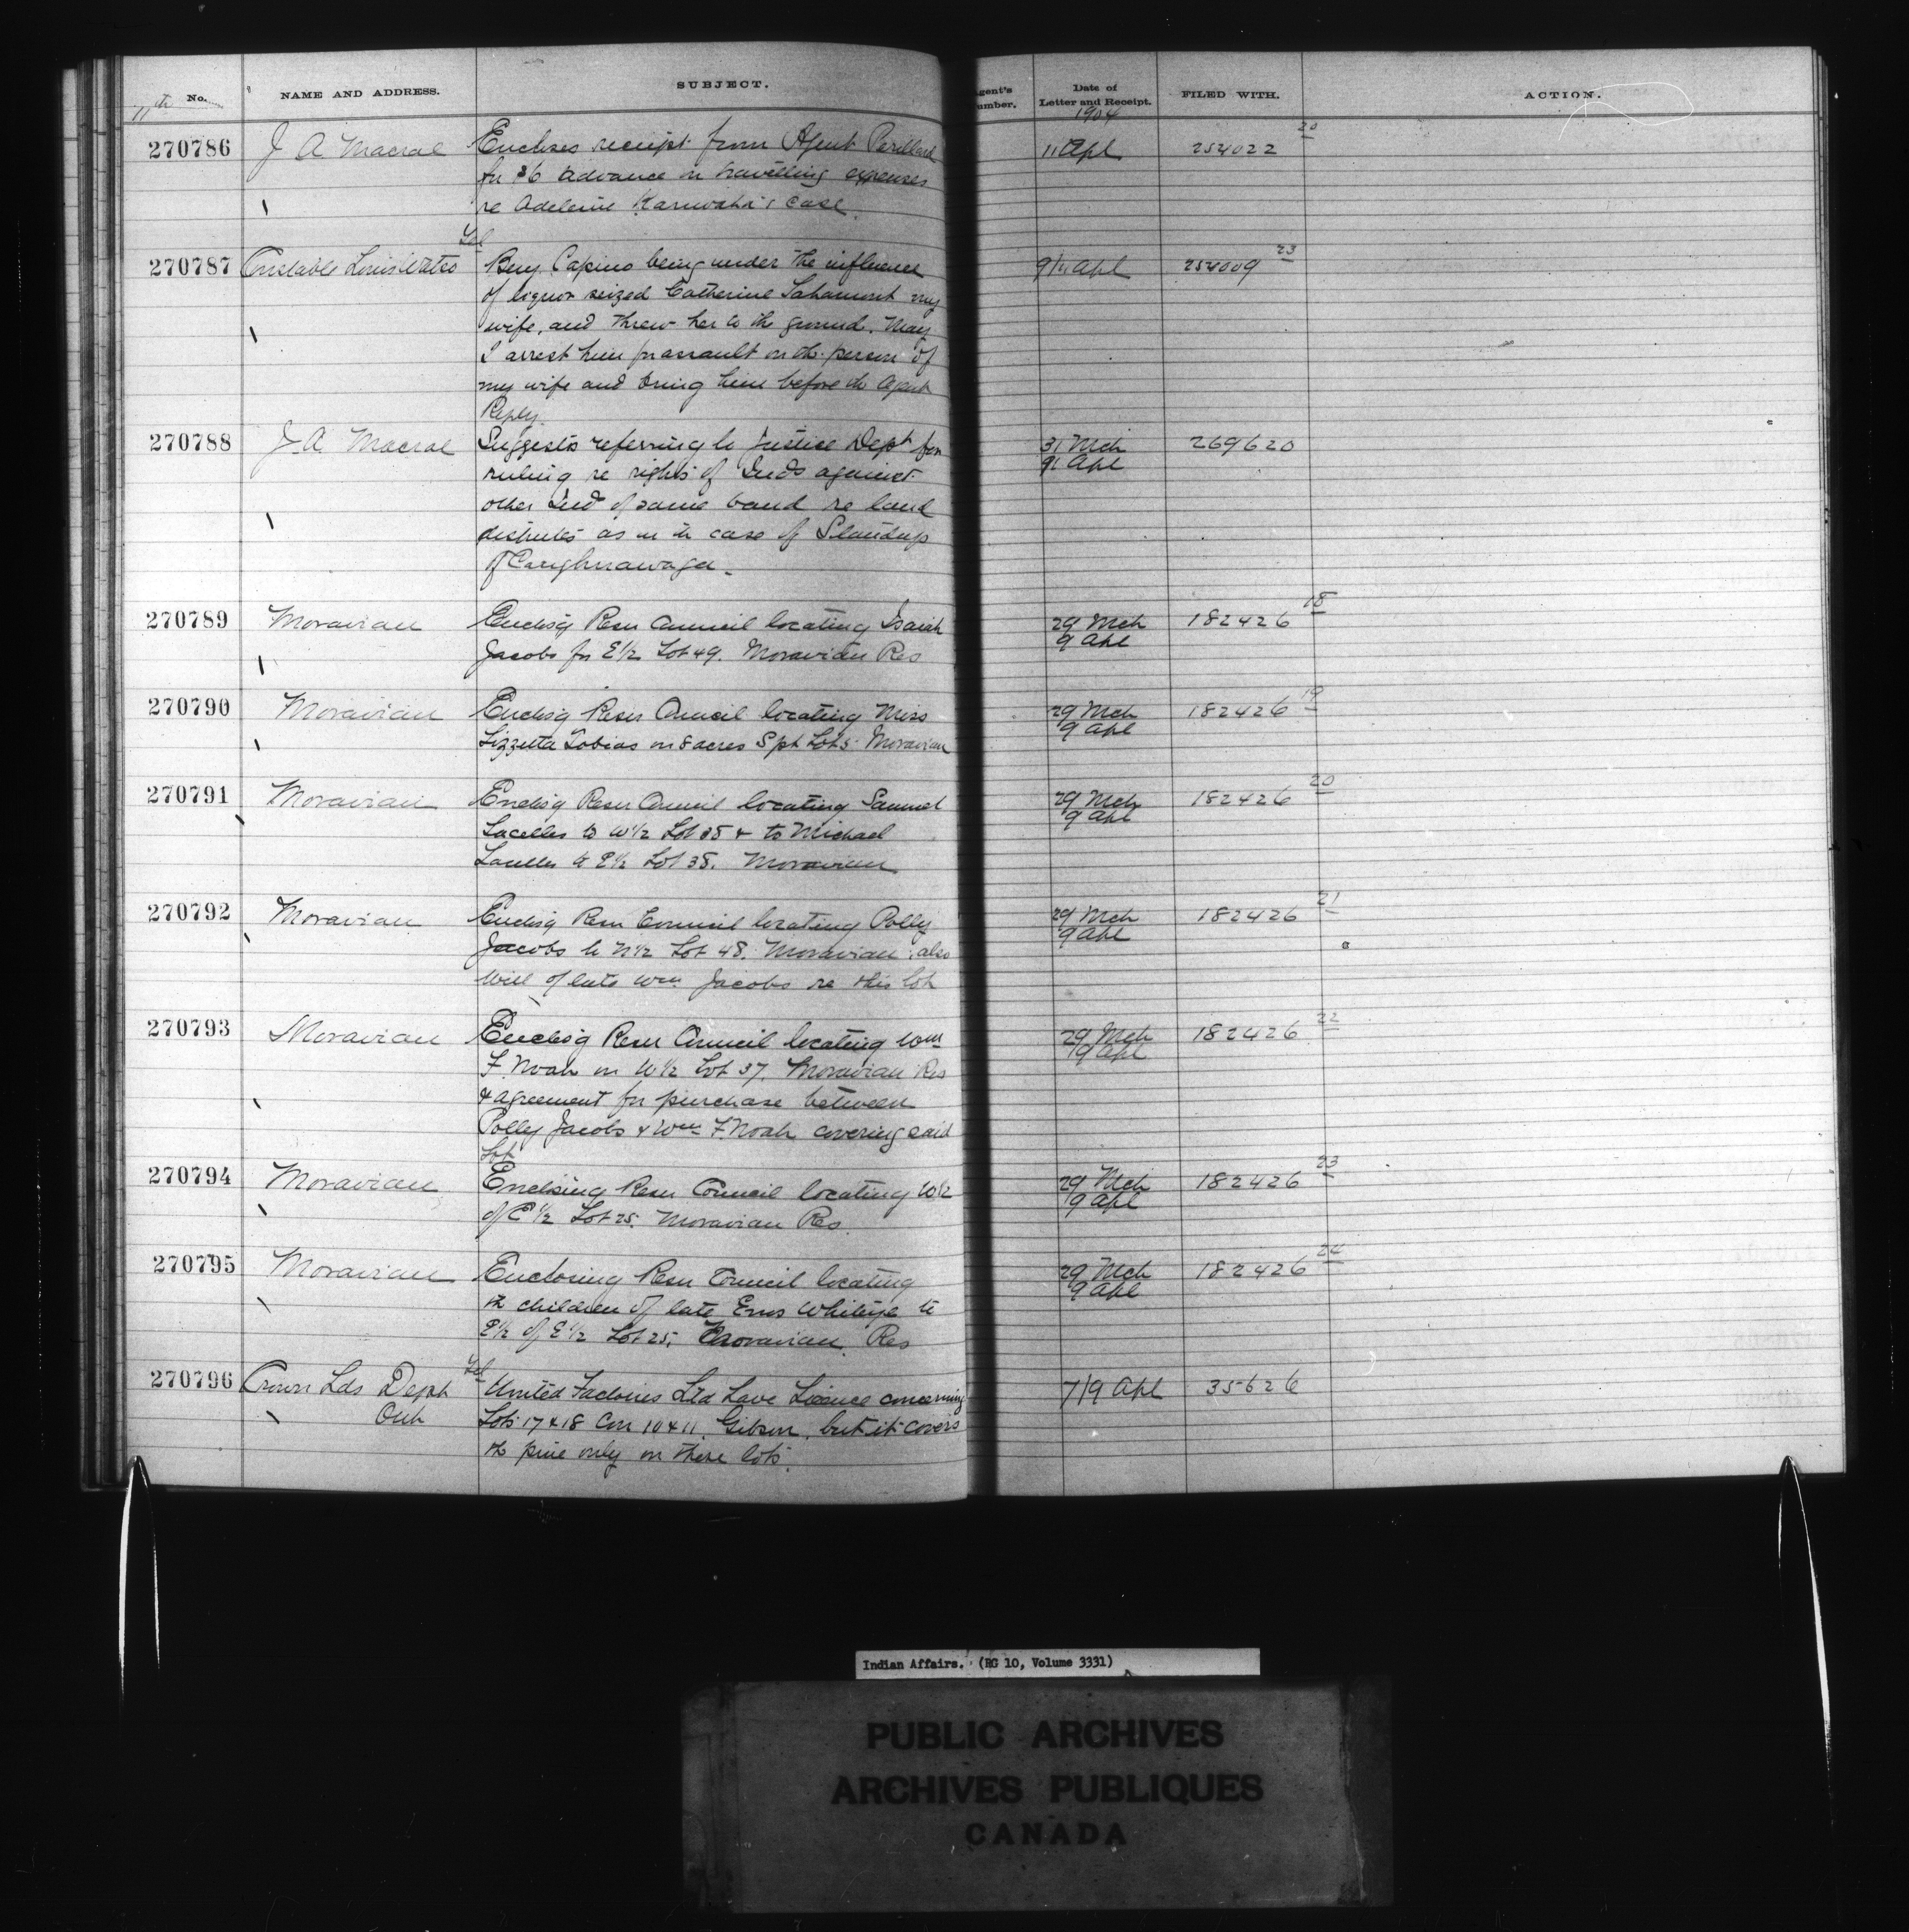 11th No. NAME AND ADDRESS. SUBJECT. Agent's Number. Date of Letter and Receipt. FILED WITH. ACTION.
1904
270786 J A Macrae Encloses receipt from Agent 11 Apl 254022 20
for $6 advance on travelling expenses
re Adeleine case.
Tel
270787 Constable Louis Beny Capino being under the influence 9/11 Apl 254009 23
of liquor seized Catherine my
wife, and threw her to the ground. May
I arrest him for assault on the person of
my wife and bring him before the Agent
Reply
270788 J A Macrae Suggests referring to Justice Dept for 31 Mch 269620
ruling re rights of Inds against 9/11 Apl
other Ind of same band re land
disputes as in the case of Standup
of Caughnawaga.
270789 Moravian Enclosg Resn Council locating Isaiah 29 Mch 182426 18
Jacobs for E½ Lot 49. Moravian Res 9 Apl
270790 Moravian Enclosg Resn Council locating Miss 29 Mch 182426 19
Lizzetta Tobias on 8 acres S pt Lot 5 Moravian 9 Apl
270791 Moravian Enclosg Resn Council locating Samuel 29 Mch 182426 20
Lacelles to W½ Lot 35 & to Michael 9 Apl
Lacelles to E½ Lot 35. Moravian
270792 Moravian Enclosg Resn Council locating Polly 29 Mch 182426 21
Jacobs to N½ Lot 48. Moravian, also 9 Apl
Will of late Wm Jacobs re this lot
270793 Moravian Enclosg Resn Council locating Wm 29 Mch 182426 22
F. Noah on W½ Lot 37. Moravian Res 9 Apl
& agreement for purchase between
Polly Jacobs & Wm F. Noah covering said
Lot
270794 Moravian Enclosing Resn Council locating W½ 29 Mch 182426 23
of E½ Lot 25. Moravian Res. 9 Apl
270795 Moravian Enclosing Resn Council locating 29 Mch 182426 24
the children of late Enos Whiteye to 9 Apl
E½ of E½ Lot 25, Moravian Res
Tel
270796 Crown Lds Dept United Factories Ltd have Licence concerning 7/9 Apl 35626
Ont Lots 17 & 18 Con 10 & 11, Gibson, but it covers
the pine only on these lots.
Indian Affairs. (RG 10, Volume 3331)
PUBLIC ARCHIVES
ARCHIVES PUBLIQUES
CANADA